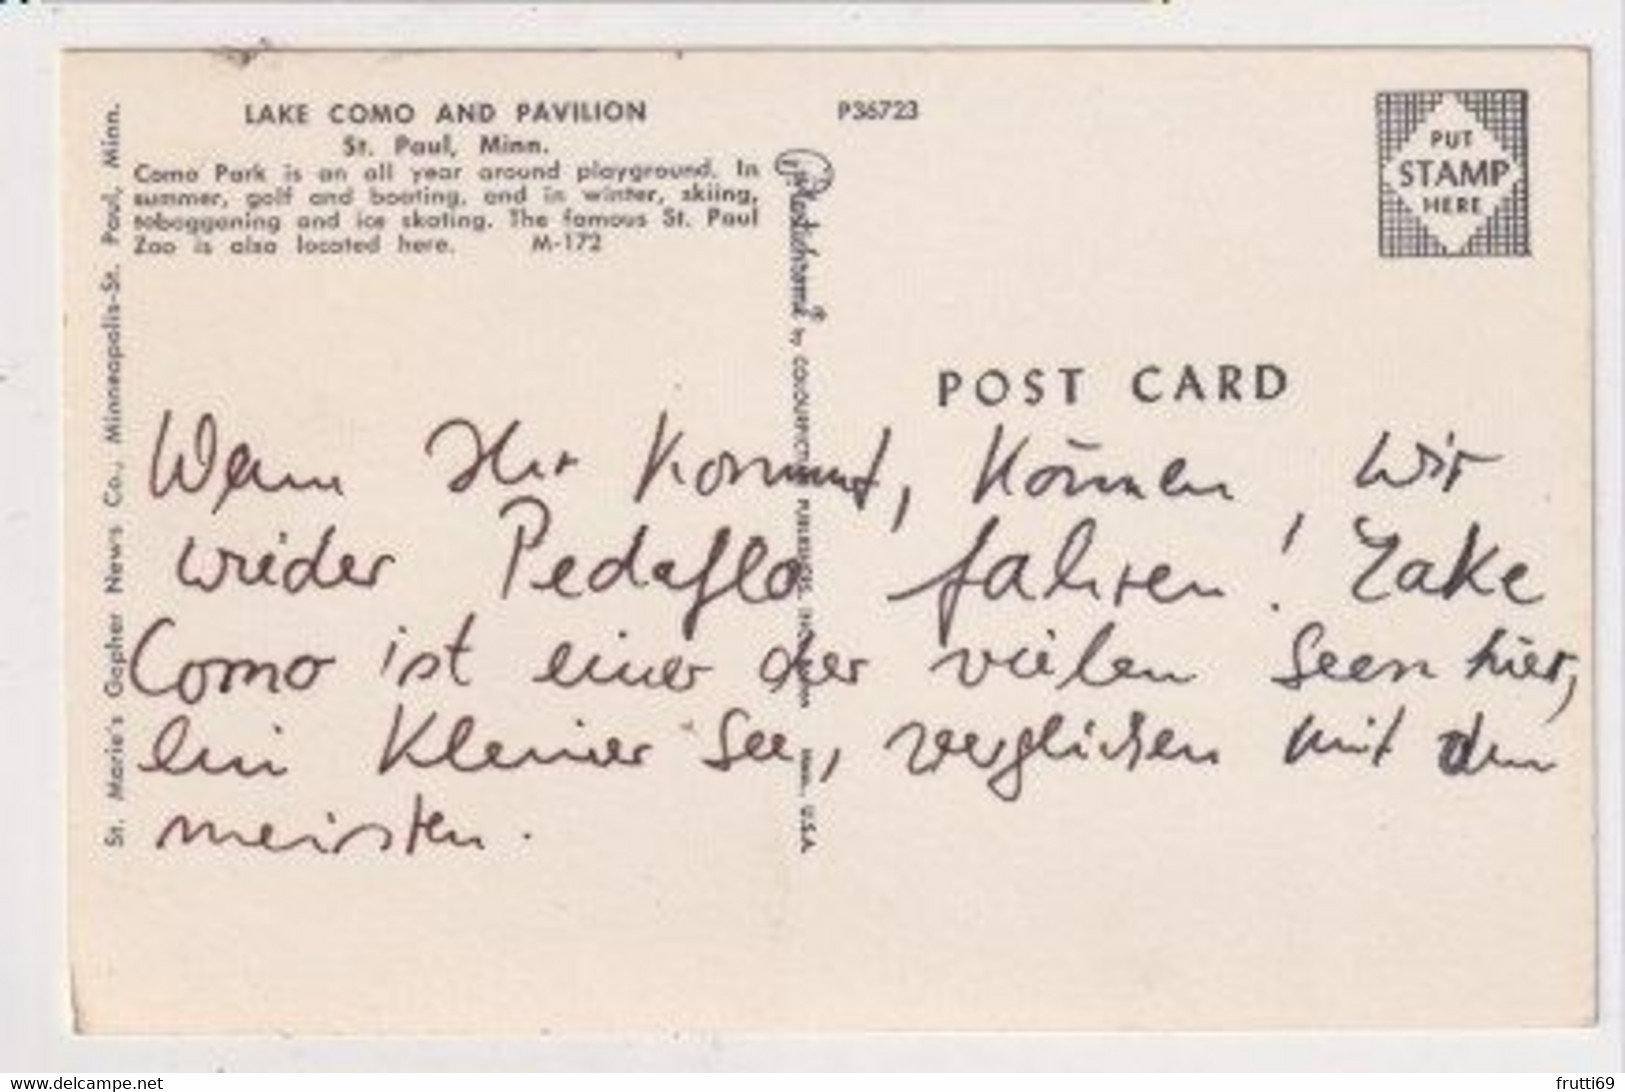 LAKE COMO AND PAVILION
St. Paul, Minn.
Como Park is an all year around playground. In
summer, golf and boating, and in winter, skiing,
tobogganing and ice skating. The famous St. Paul
Zoo is also located here. M-172
P36723
PUT
STAMP
HERE
St. Marie's Gopher News Co., Minneapolis-St. Paul, Minn.
Plastichrome ® by COLOURPICTURE PUBLISHERS, INC. U.S.A.
POST CARD
Wenn Ihr kommt, können wir
wieder Pedaflo fahren! Lake
Como ist einer der vielen Seen hier,
ein kleiner See, verglichen mit den
meisten.
frutti69
www.delcampe.net